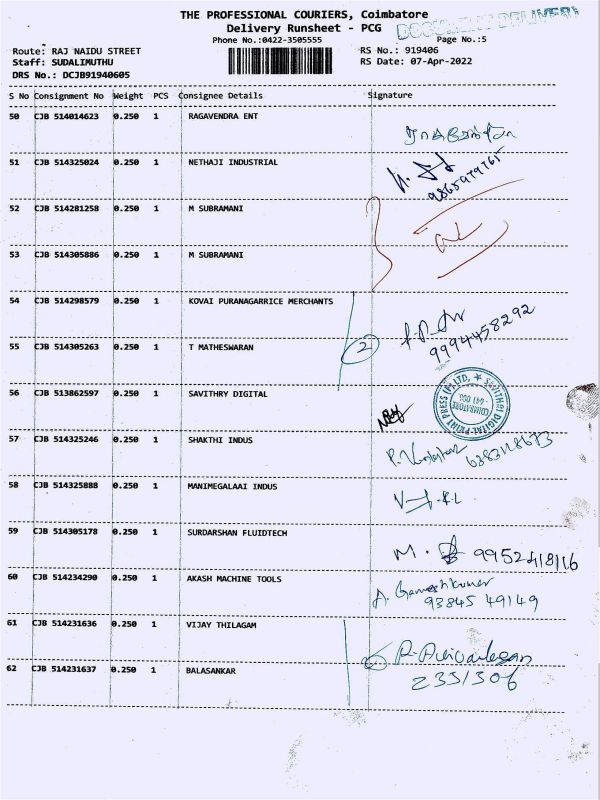 THE PROFESSIONAL COURIERS, Coimbatore
DOCUMENT DELIVERY
Delivery Runsheet - PCG
Phone No.:0422-3505555 Page No.:5
Route: RAJ NAIDU STREET RS No.: 919406
Staff: SUDALIMUTHU RS Date: 07-Apr-2022
DRS No.: DCJB91940605
S No Consignment No Weight PCS Consignee Details Signature
50 CJB 514014623 0.250 1 RAGAVENDRA ENT
51 CJB 514325024 0.250 1 NETHAJI INDUSTRIAL
52 CJB 514281258 0.250 1 M SUBRAMANI
53 CJB 514305886 0.250 1 M SUBRAMANI
54 CJB 514298579 0.250 1 KOVAI PURANAGARRICE MERCHANTS
9994458292
55 CJB 514305263 0.250 1 T MATHESWARAN 2
56 CJB 513862597 0.250 1 SAVITHRY DIGITAL
SAVITHRI DIGITAL PRINT PRESS (P) LTD,
COIMBATORE
57 CJB 514325246 0.250 1 SHAKTHI INDUS
58 CJB 514325888 0.250 1 MANIMEGALAAI INDUS
59 CJB 514305178 0.250 1 SURDARSHAN FLUIDTECH
M. 9952418116
60 CJB 514234290 0.250 1 AKASH MACHINE TOOLS
A. Ganeshkumar
93845 49149
61 CJB 514231636 0.250 1 VIJAY THILAGAM
62 CJB 514231637 0.250 1 BALASANKAR
235/306